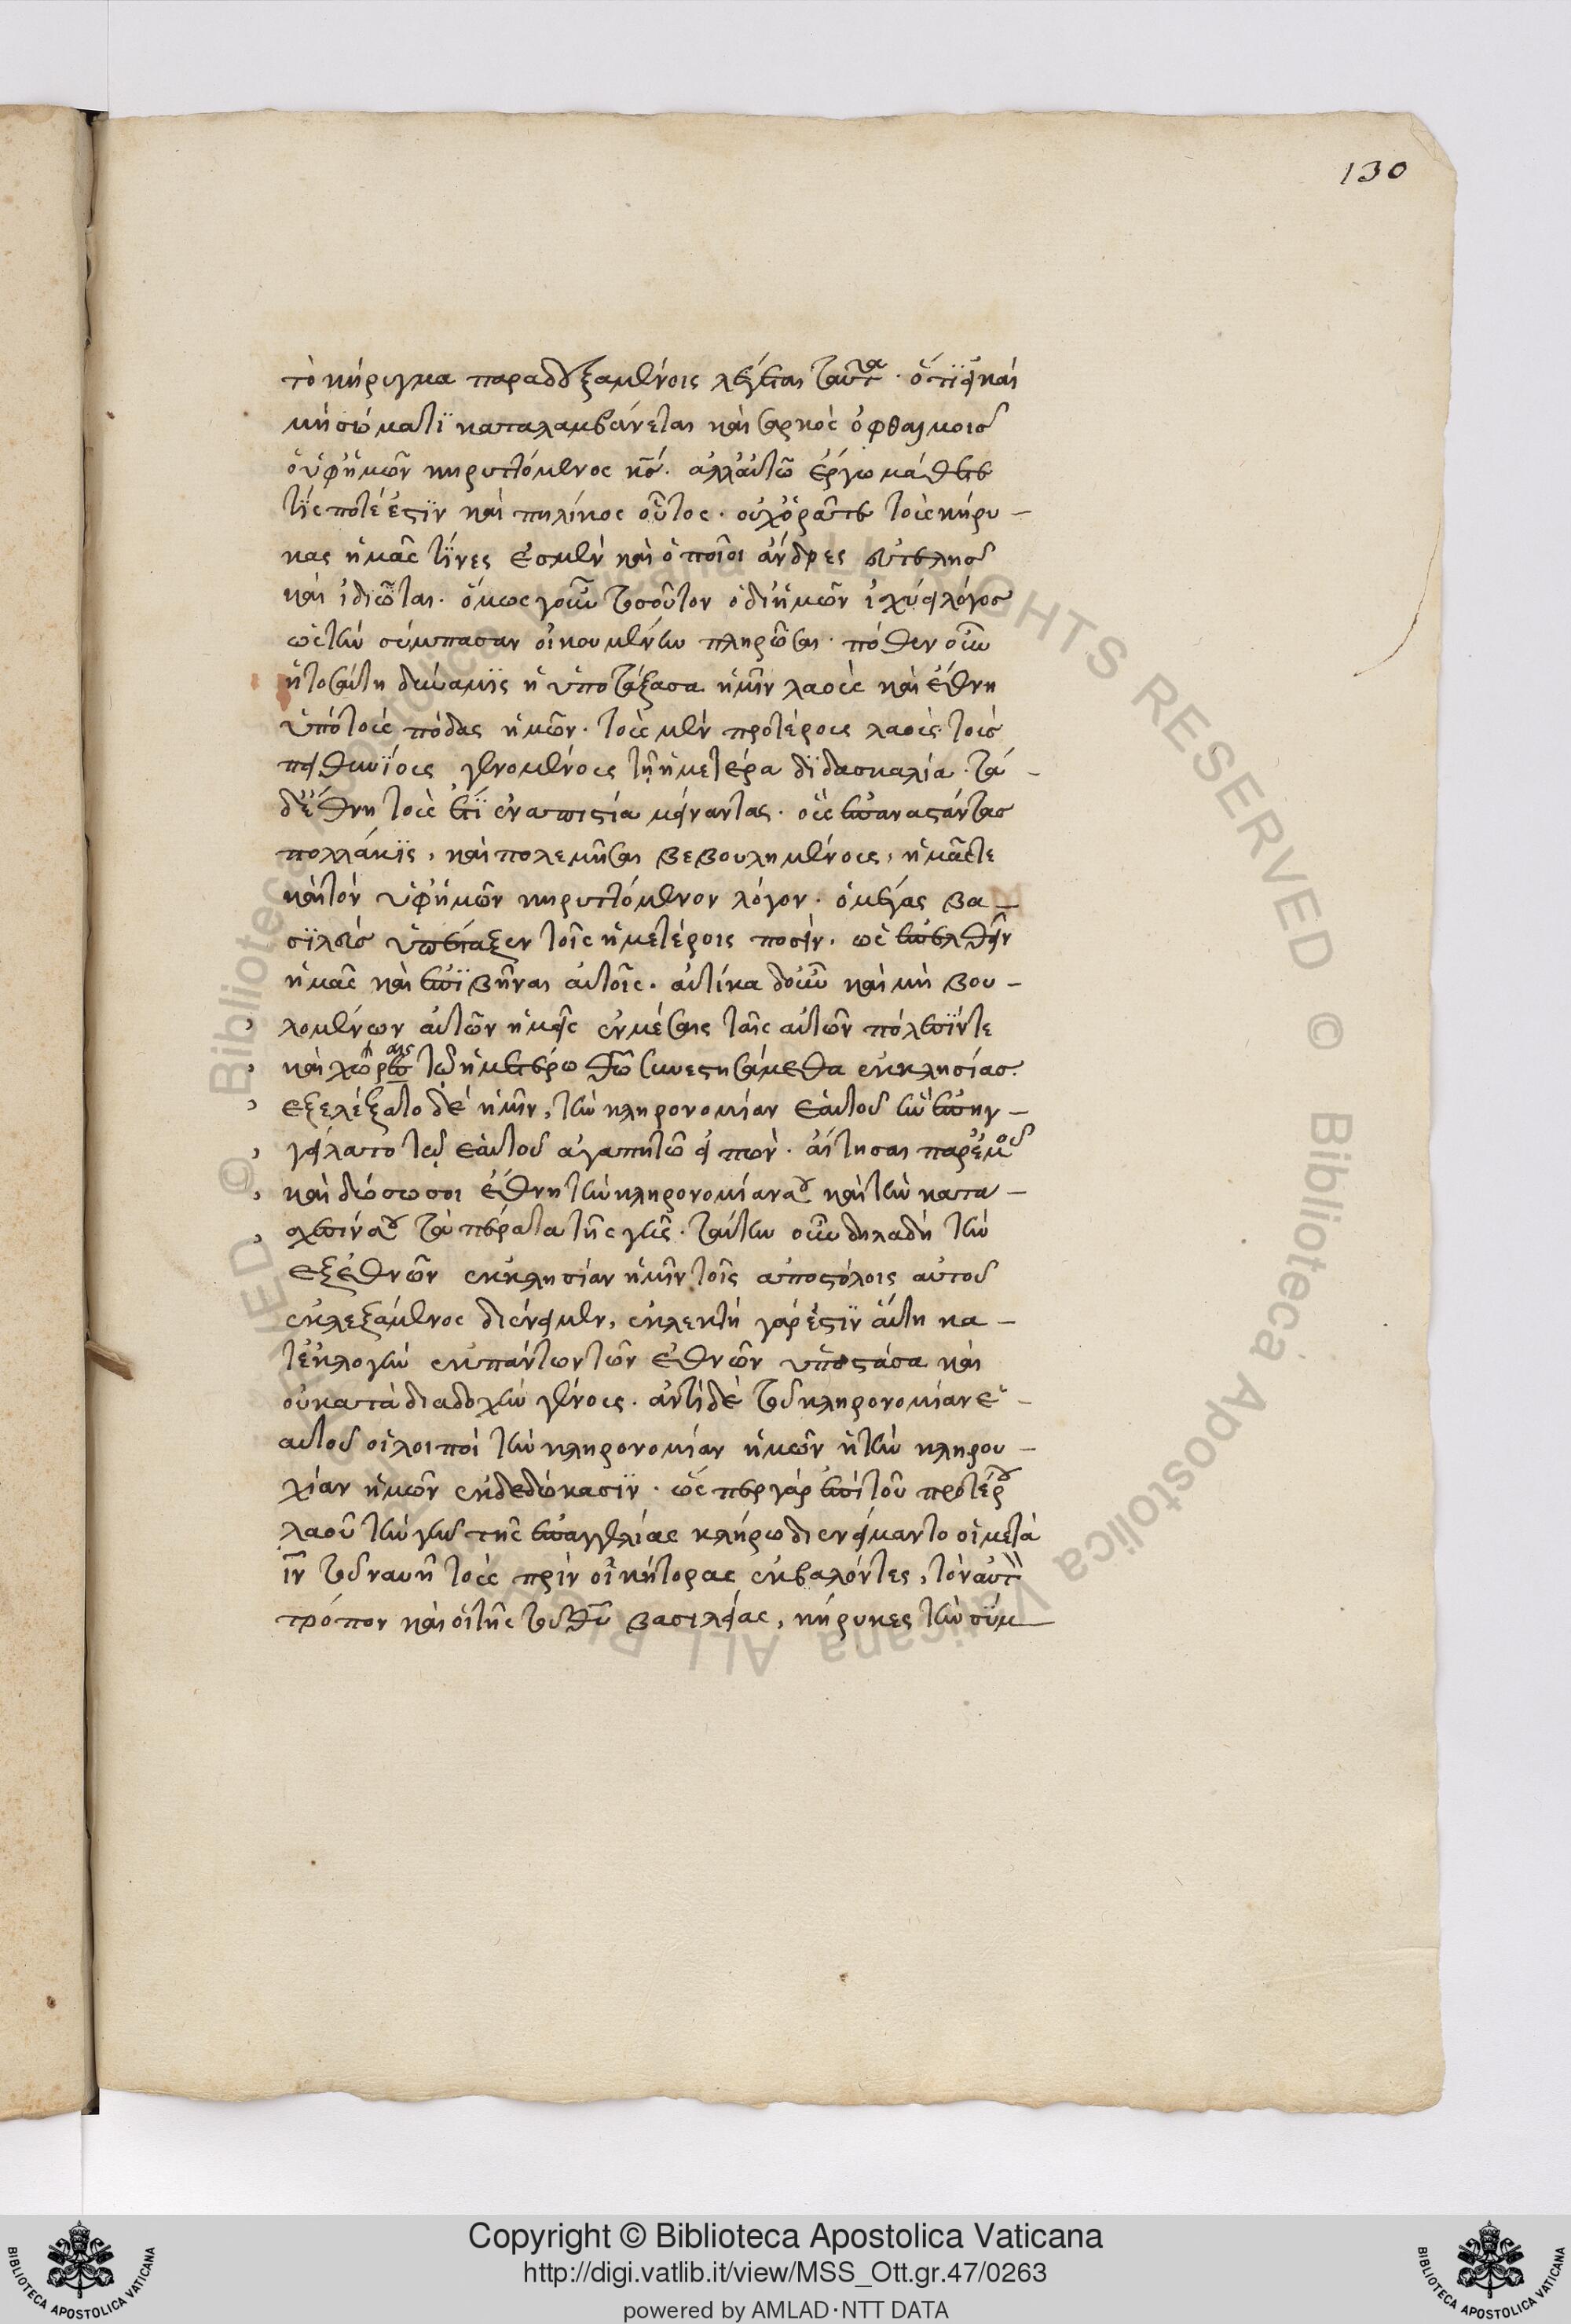 130
τὸ κήρυγμα παραδεξαμένοις λέγεται ταῦτα. ὅτι εἰ καὶ
μὴ σώματι καταλαμβάνεται καὶ σαρκὸς ὀφθαλμοῖς
ὁ ὑφ' ἡμῶν κηρυττόμενος κς. ἀλλ' αὐτῶ ἔργω μάθετε
τίς ποτέ ἐστιν καὶ πηλίκος οὗτος. οὐχ ὁρᾶτε τοὺς κήρυ-
κας ἡμᾶς τίνες ἐσμὲν καὶ ὁποῖοι ἄνδρες εὐτελεῖς
καὶ ἰδιῶται. ὅμως γοῦν τοσοῦτον ὁ δι' ἡμῶν ἰσχύει λόγος
ὡς τὴν σύμπασαν οἰκουμένην πληρῶσαι. πόθεν οὖν
ἡ τοσαύτη δύναμις ἡ ὑποτάξασα ἡμῖν λαοὺς καὶ ἔθνη
ὑπὸ τοὺς πόδας ἡμῶν. τοὺς μὲν προτέρους λαοὺς τοὺς
πειθηνίους γενομένους τῆ ἡμετέρα διδασκαλία. τὰ
δὲ ἔθνη τοὺς ἔτι ἐν ἀπιστία μείναντας. οὓς ἐπαναστάντας
πολλάκις, καὶ πολεμῆσαι βεβουλημένους, ἡμᾶς τε
καὶ τὸν ὑφ' ἡμῶν κηρυττόμενον λόγον. ὁ μέγας βα-
σιλεὺς ὑπέταξεν τοῖς ἡμετέροις ποσίν. ὡς ἐπελθεῖν
ἡμᾶς καὶ ἐπιβῆναι αὐτοῖς. αὐτίκα δ' οὖν καὶ μὴ βου-
λομένων αὐτῶν ἡμεῖς ἐν μέσαις ταῖς αὐτῶν πόλεσίν τε
καὶ χώραις τῶ ἡμετέρω θῶ συνεστησάμεθα ἐκκλησίας.
ἐξελέξατο δὲ ἡμῖν, τὴν κληρονομίαν ἑαυτοῦ ἣν ἐπηγ-
γείλατο τῶ ἑαυτοῦ ἀγαπητῶ εἰπών. αἴτησαι παρ' ἐμοῦ
καὶ δώσω σοι ἔθνη τὴν κληρονομίαν σου καὶ τὴν κατά-
σχεσίν σου τὰ πέρατα τῆς γῆς. ταύτην οὖν δηλαδὴ τὴν
ἐξ ἐθνῶν ἐκκλησίαν ἡμῖν τοῖς ἀποστόλοις αὐτοῦ
ἐκλεξάμενος διένειμεν, ἐκλεκτὴ γάρ ἐστιν αὕτη κα-
τ' ἐκλογὴν ἐκ πάντων τῶν ἐθνῶν ὑποστᾶσα καὶ
οὐ κατὰ διαδοχὴν γένους. ἀντὶ δὲ τοῦ κληρονομίαν ἑ-
αυτοῦ οἱ λοιποὶ τὴν κληρονομίαν ἡμῶν ἢ τὴν κληρου-
χίαν ἡμῶν ἐκδεδώκασιν. ὥσπερ γὰρ ἐπὶ τοῦ προτέρου
λαοῦ τὴν γῆν τῆς ἐπαγγελίας κλήρω διενείμαντο οἱ μετὰ
ιυ τοῦ ναυῆ τοὺς πρὶν οἰκήτορας ἐκβαλόντες, τὸν αὐτὸν
τρόπον καὶ οἱ τῆς τοῦ θυ βασιλείας, κήρυκες τὴν σύμ
Copyright © Biblioteca Apostolica Vaticana
http://digi.vatlib.it/view/MSS_Ott.gr.47/0263
powered by AMLAD·NTT DATA
BIBLIOTECA APOSTOLICA VATICANA
BIBLIOTECA APOSTOLICA VATICANA